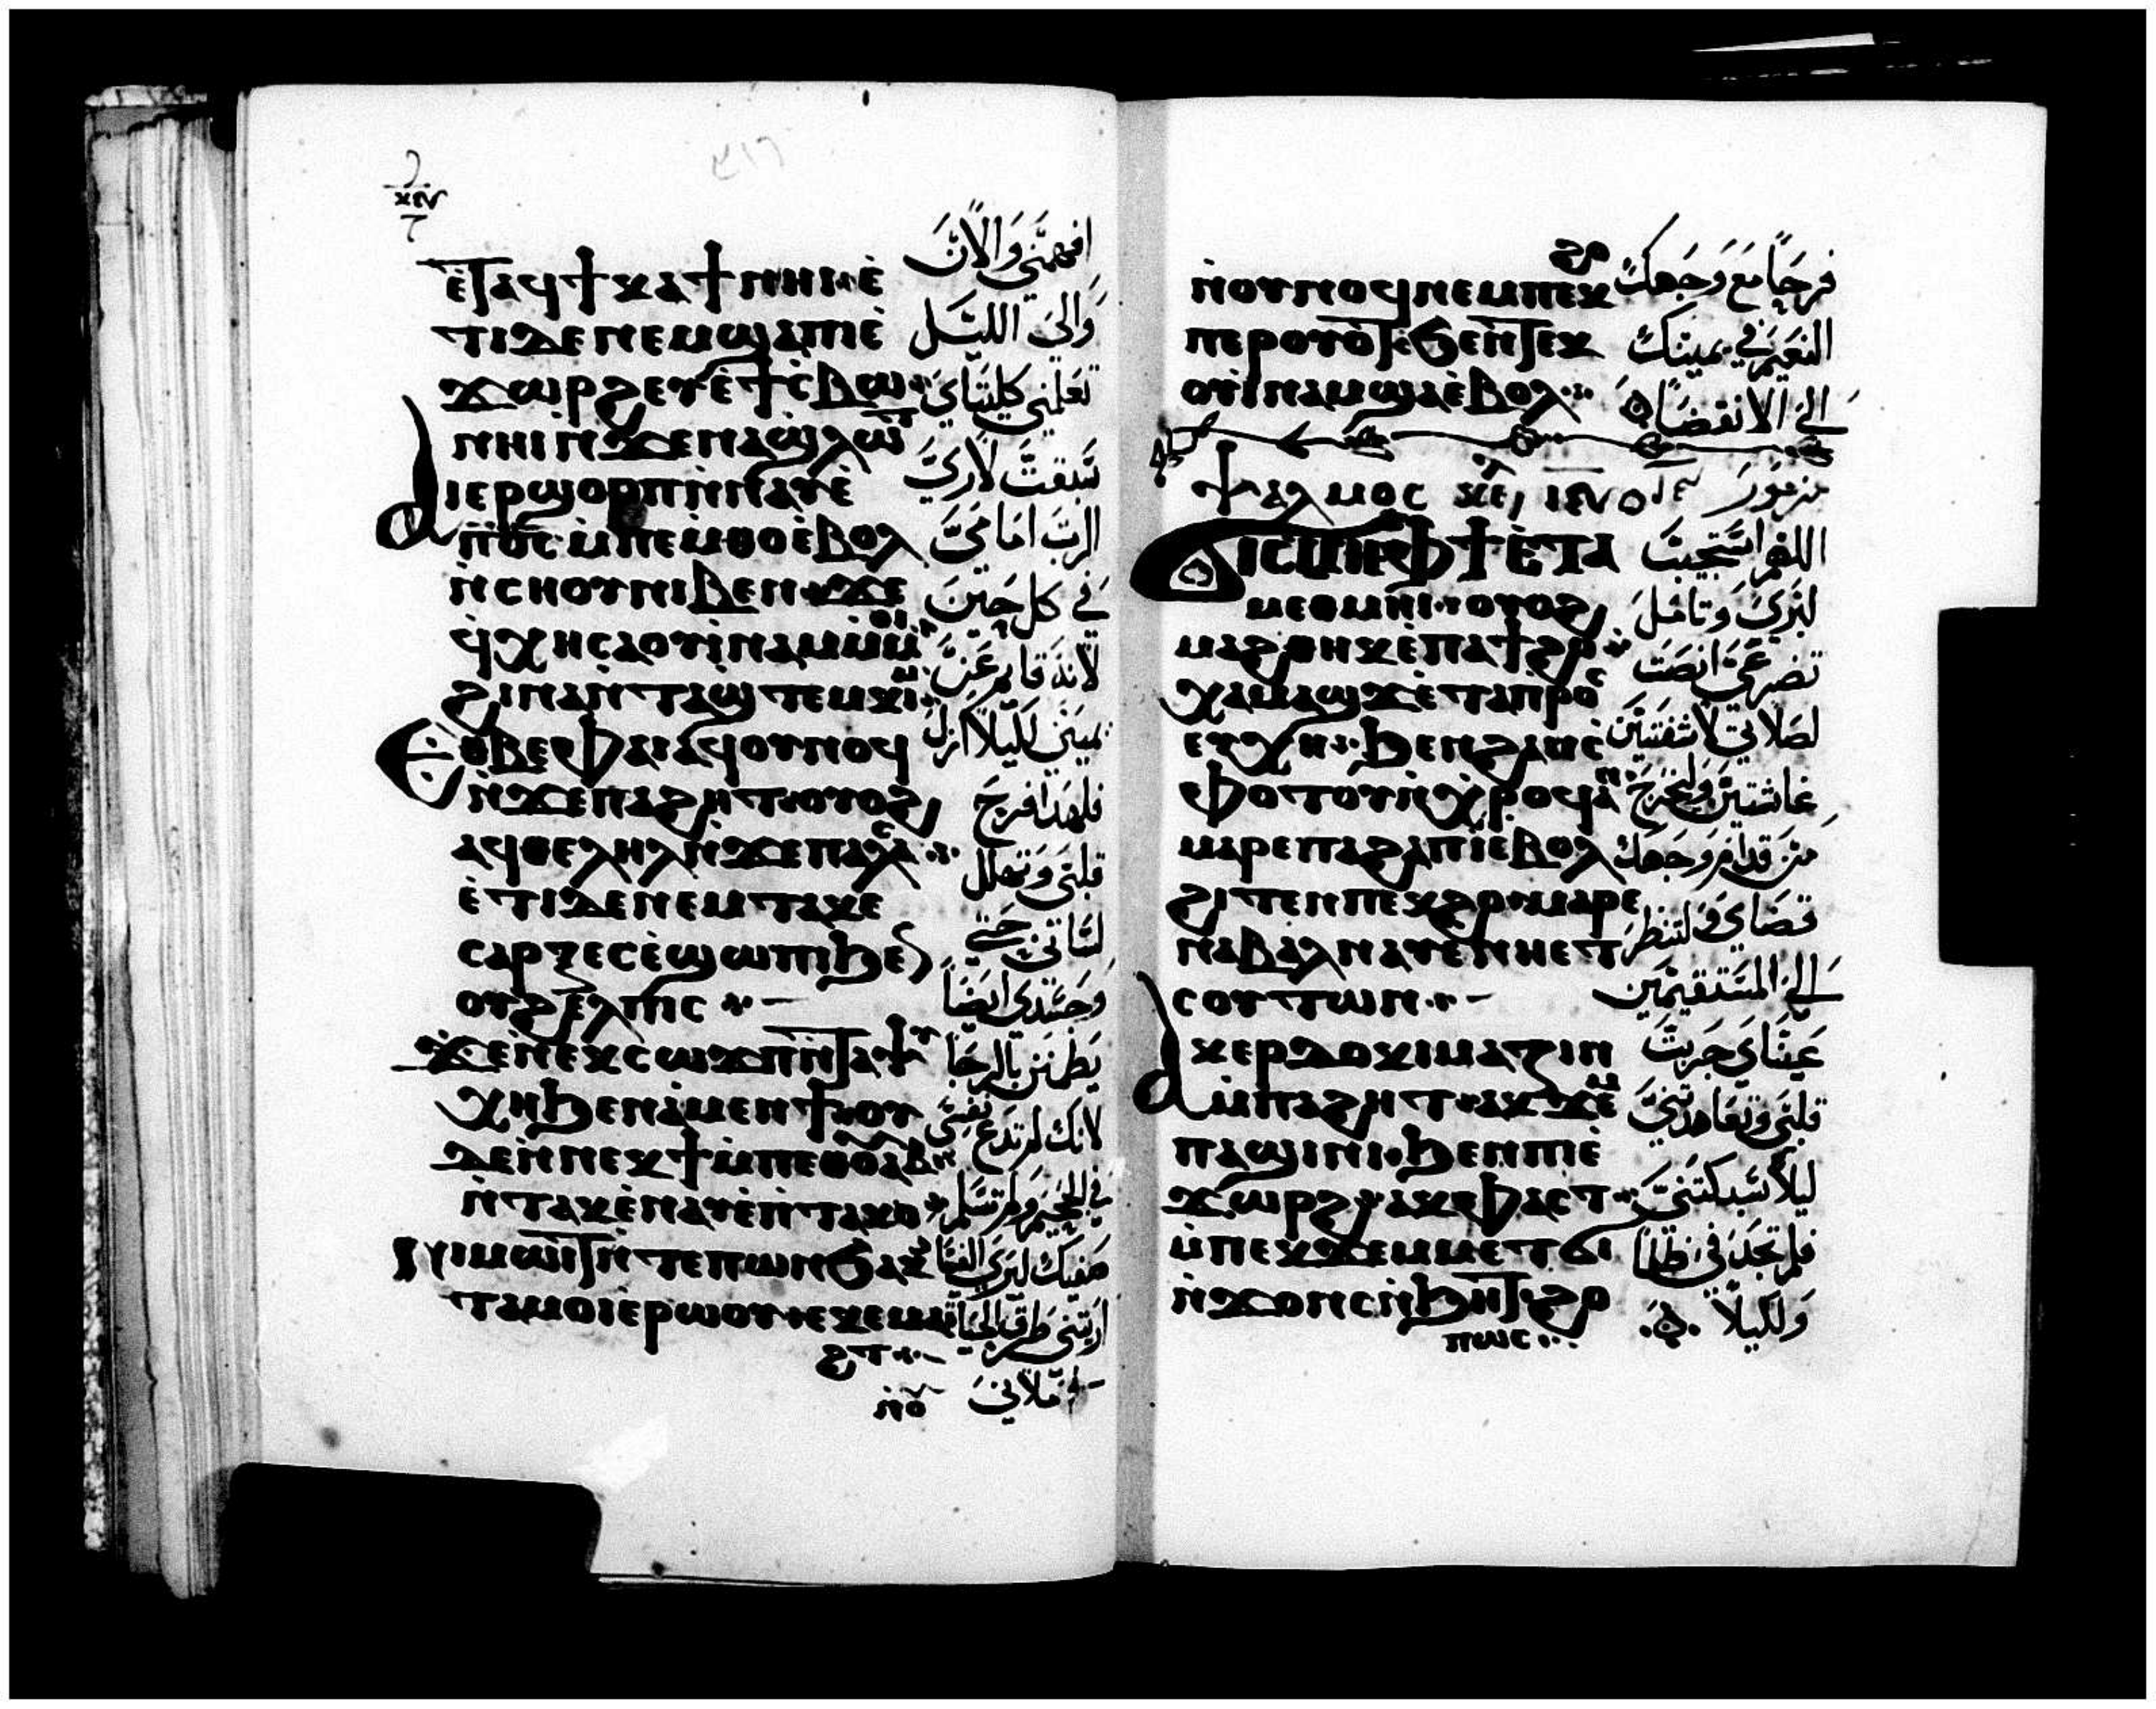 ⲉⲧⲁϥϯⲕⲁϯ ⲛⲏⲓ ⲉ̇
ⲧⲓⲇⲉ ⲛⲉⲙ ϣⲁ ⲡⲓⲉ̇
ϫⲱⲣϩ ⲉⲩⲉ̇ϯⲥ̇ⲃⲱ
ⲛⲏⲓ ⲛ̇ϫⲉ ⲛⲁϭⲗⲱⲧ
ⲁⲓⲉⲣϣⲟⲣⲡ ⲛ̇ⲛⲁⲩ ⲉ̇
ⲡⲟ̅ⲥ̅ ⲙ̇ⲡⲉⲙ̇ⲑⲟ ⲉ̇ⲃⲟⲗ
ⲛ̇ⲥⲏⲟⲩ ⲛⲓⲃⲉⲛ ϫⲉ
ϥ̇ⲭⲏ ⲥⲁⲟⲩⲓ̇ⲛⲁⲙ ⲙ̇ⲙⲟⲓ
ϩⲓⲛⲁ ⲛ̇ⲧⲁϣⲧⲉⲙⲕⲓⲙ
Ⲉⲑⲃⲉ ⲫⲁⲓ ⲁϥⲟⲩⲛⲟϥ
ⲛ̇ϫⲉ ⲡⲁϩⲏⲧ ⲟⲩⲟϩ
ⲁϥⲑⲉⲗⲏⲗ ⲛ̇ϫⲉ ⲡⲁⲗⲁⲥ
ⲉ̇ⲧⲓⲇⲉ ⲛⲉⲙ ⲧⲁⲕⲉ
ⲥⲁⲣⲝ ⲉⲥⲉ̇ϣⲱⲡⲓ ϧⲉⲛ
ⲟⲩϩⲉⲗⲡⲓⲥ
ϫⲉ ⲛ̇ⲛⲉⲕⲥⲱϫⲡ ⲛ̇ⲧⲁⲯⲩ
ⲭⲏ ϧⲉⲛ ⲁ̇ⲙⲉⲛϯ ⲟⲩ
ⲇⲉ ⲛ̇ⲛⲉⲕϯ ⲙ̇ⲡⲉⲑⲟⲩⲁⲃ
ⲛ̇ⲧⲁⲕ ⲉ̇ⲛⲁⲩ ⲉ̇ⲡⲧⲁⲕⲟ
ⲛⲓⲙⲱⲓⲧ ⲛ̇ⲧⲉ ⲡⲱⲛϧ ⲁⲕ
ⲧⲁⲙⲟⲓ ⲉⲣⲱⲟⲩ ⲉⲕⲉⲙⲁ
ϩⲧ
ⲛ̇ⲟⲩ
افهمني والان
والى الليل
تعلمني كليتاي
سبقت لاري
الرب امامي
في كل حين
لانه قايم عن
يميني لكيلا ازل
فلهدا فرح
قلبي وتهلل
لساني حتي
وجسدي ايضًا
يطمئن بالرجا
لانك لم تدع نفسي
في الجحيم ولم تسلم
صفيك ليري الفساد
اريتني طرق الحياة
تملاني
ⲛ̇ⲟⲩⲛⲟϥ ⲛⲉⲙ ⲡⲉⲕϩⲟ
ⲡⲉⲣⲟⲩⲟⲧ ϧⲉⲛ ⲧⲉⲕ
ⲟⲩⲓ̇ⲛⲁⲙ ϣⲁ ⲉ̇ⲃⲟⲗ
فرحًا مع وجهك
النعيم في يمينك
الى الانقضا
ⲯⲁⲗⲙⲟⲥ ⲓ̅ⲋ̅ مزمور
Ⲥⲱⲧⲉⲙ ⲫϯ ⲉ̇ⲧⲁ
ⲙⲉⲑⲙⲏⲓ ⲟⲩⲟϩ
ⲙⲁϩⲑⲏⲕ ⲉ̇ⲡⲁϯϩⲟ
ϭⲓⲥⲙⲏ ⲉ̇ⲧⲁⲡⲣⲟⲥ
ⲉⲩⲭⲏ ϧⲉⲛ ϩⲁⲛⲥ̇
ⲫⲟⲧⲟⲩ ⲛ̇ⲭⲣⲟϥ ⲁⲛ
ⲙⲁⲣⲉ ⲡⲁϩⲁⲡ ⲓ̀ ⲉ̇ⲃⲟⲗ
ϩⲓⲧⲉⲛ ⲡⲉⲕϩⲟ ⲙⲁⲣⲉ
ⲛⲁⲃⲁⲗ ⲛⲁⲩ ⲉ̇ⲛⲏⲉⲧ
ⲥⲟⲩⲧⲱⲛ
ⲁⲕⲉⲣⲇⲟⲕⲓⲙⲁⲍⲓⲛ
ⲙ̇ⲡⲁϩⲏⲧ ⲁⲕϫⲉⲙ
ⲡⲁϣⲓⲛⲓ ϧⲉⲛ ⲡⲓⲉ̇
ϫⲱⲣϩ ⲁⲕⲫⲁⲥⲧ
ⲙ̇ⲡⲉⲕϫⲉⲙ ⲙⲉⲧϭⲓ
ⲛ̇ϫⲟⲛⲥ ⲛ̇ϧⲏⲧ ϩⲟ
ⲡⲱⲥ
اللهم استجيب
لبري وتامل
تضرعي انصت
لصلاتي لا شفتين
غاشتين وليخرج
من قدام وجهك
قضاي ولتنظر
الى المستقيمين
عيناي جربت
قلبي وتعاهدتني
ليلاً سبكتني
فلم تجد في ظلمًا
ولكيلا